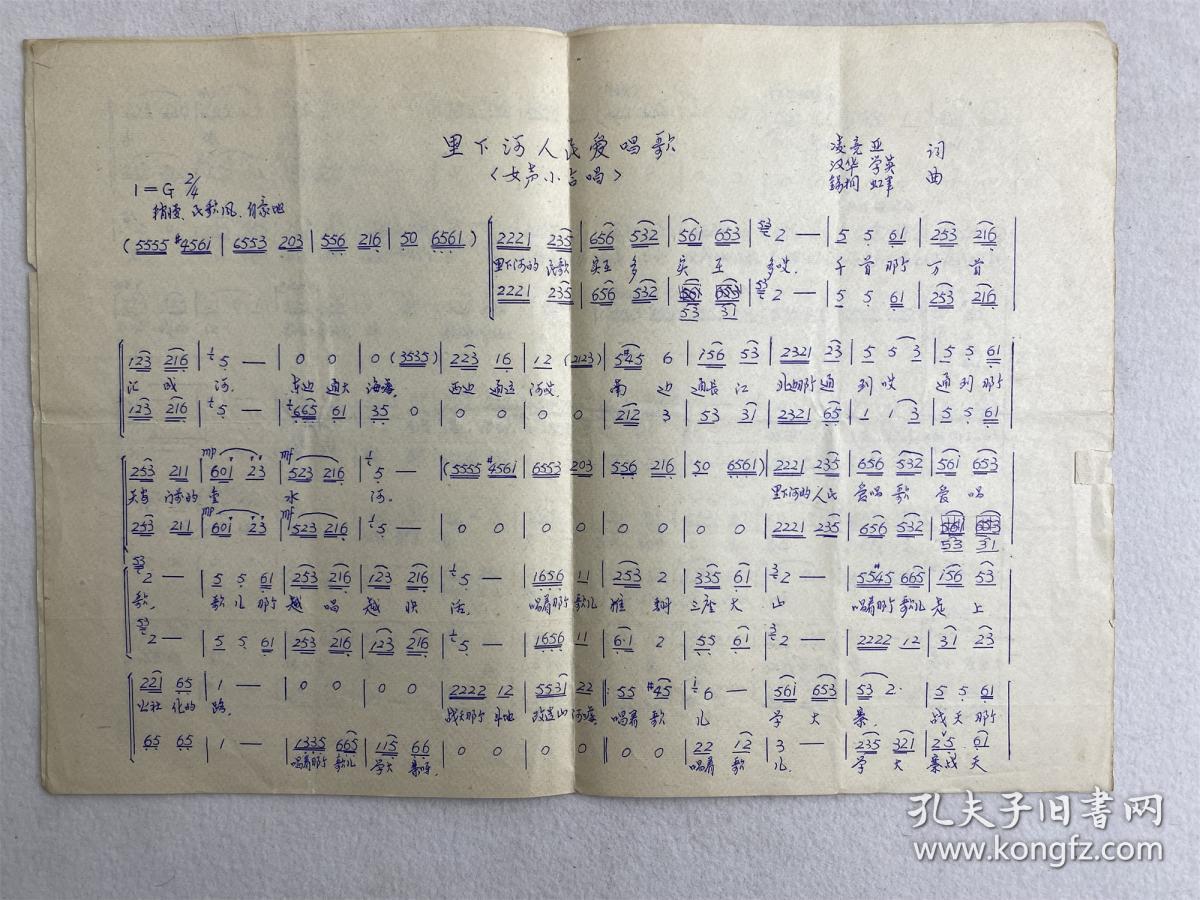 里下河人民爱唱歌
〈女声小合唱〉
凌亮亚 词
汉华 学英
锡桐 虹軍 曲
1=G 2/4
稍慢、民歌风、自豪地
(5555 #4561 | 6553 203 | 556 216 | 50 6561)
2221 235 | 656 532 | 561 653 | 2 — | 5 5 61 | 253 216
里下河的 民歌 实在 多 实在 多哎. 千首那个 万首
2221 235 | 656 532 | 53 31 | 2 — | 5 5 61 | 253 216
123 216 | 5 — | 0 0 | 0 (3535) | 223 16 | 12 (2123) | 5#45 6 | 156 53 | 2321 23 | 5 5 3 | 5 5 61
汇成 河. 东边 通大 海 西边 通运 河哎. 南边 通長江 北那个通 到哎 通到那个
123 216 | 5 — | 665 61 | 35 0 | 0 0 | 0 0 | 212 3 | 53 31 | 2321 65 | 1 1 3 | 5 5 61
253 211 | 601 23 | 523 216 | 5 — | (5555 #4561 | 6553 203 | 556 216 | 50 6561) | 2221 235 | 656 532 | 561 653
水 河. 里下河的 人民 爱唱歌 爱唱
253 211 | 601 23 | 523 216 | 5 — | 0 0 | 0 0 | 0 0 | 0 0 | 2221 235 | 656 532 | 53 31
2 — | 5 5 61 | 253 216 | 123 216 | 5 — | 1656 11 | 253 2 | 335 61 | 2 — | 55#45 665 | 156 53
歌. 歌儿那个 越唱 越快 活. 唱着那个 歌儿 推翻 三座大 山 唱着那个 歌儿 走上
2 — | 5 5 61 | 253 216 | 123 216 | 5 — | 1656 11 | 6·1 2 | 55 61 | 2 — | 2222 12 | 31 23
221 65 | 1 — | 0 0 | 0 0 | 2222 12 | 5531 22 | 55 #45 | 6 — | 561 653 | 53 2· | 5 5 61
公社 化的 路. 战天那个 斗地 改造山 河 唱着歌 儿 学大 寨. 战天那个
65 65 | 1 — | 1335 665 | 115 66 | 0 0 | 0 0 | 0 0 | 22 12 | 3 — | 235 321 | 25 61
唱着那个 歌儿 学大 寨呀. 唱着 歌 儿. 学大 寨战天
孔夫子旧书网
www.kongfz.com